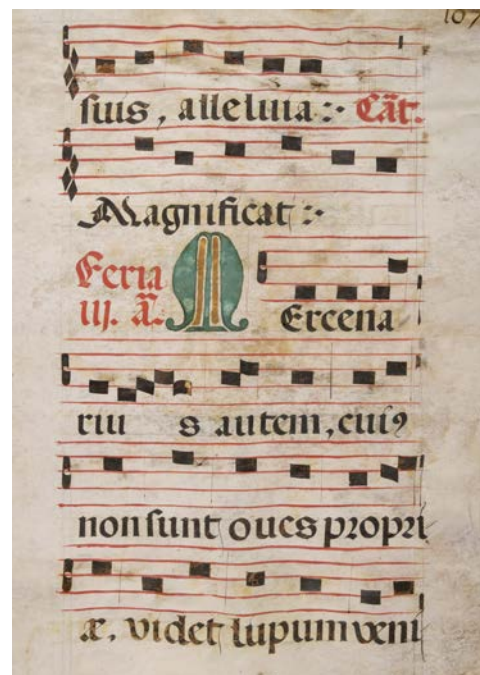 107
suis, alleluia :· Cãt.
Magnificat :·
Feria
iij. ã. MErcena
riu s autem, cuiꝰ
non sunt oues propri
æ, videt lupum veni